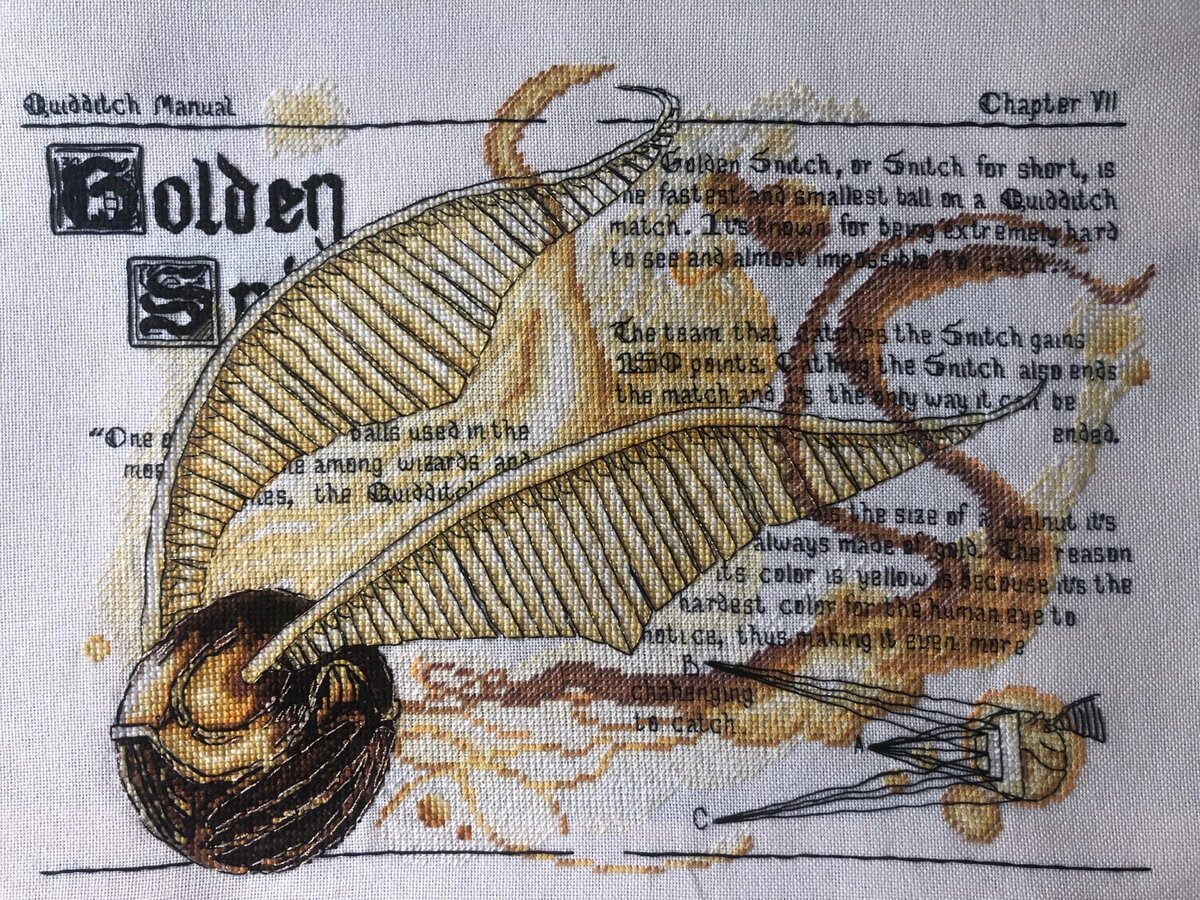 Quidditch Manual
Chapter VII
Golden
Golden Snitch, or Snitch for short, is
fastest and smallest ball on a Quidditch
match. It's known for being extremely hard
to see and almost impossible to catch.
The team that catches the Snitch gains
150 points. Cathing the Snitch also ends
the match and it's the only way it can be
ended.
"One
balls used in the
among wizards and
the Quidditch
the size of a walnut it's
always made of gold. The reason
its color is yellow is because it's the
hardest color for the human eye to
notice, thus making it even more
B
to catch.
A
C